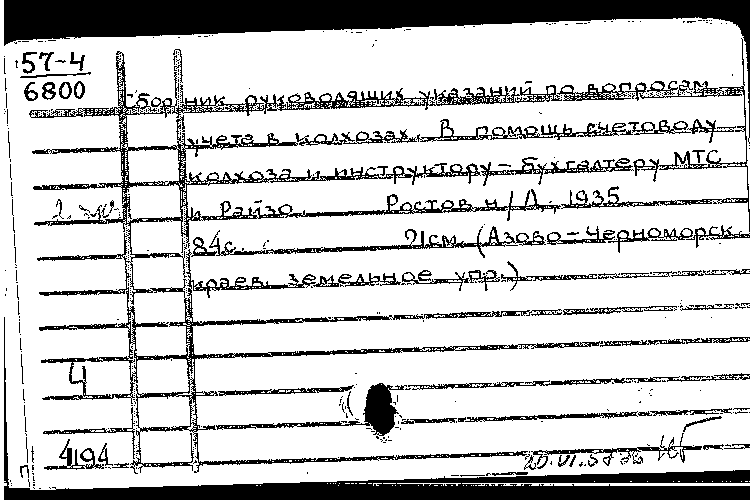 57-4
6800
Сборник руководящих указаний по вопросам
учета в колхозах. В помощь счетоводу
колхоза и инструктору-бухгалтеру МТС
2 экз
и Райзо. Ростов н/Д., 1935
84с. 21см. (Азово-Черноморск.
краев. земельное упр.)
Ч
4194
20.VI.57
П